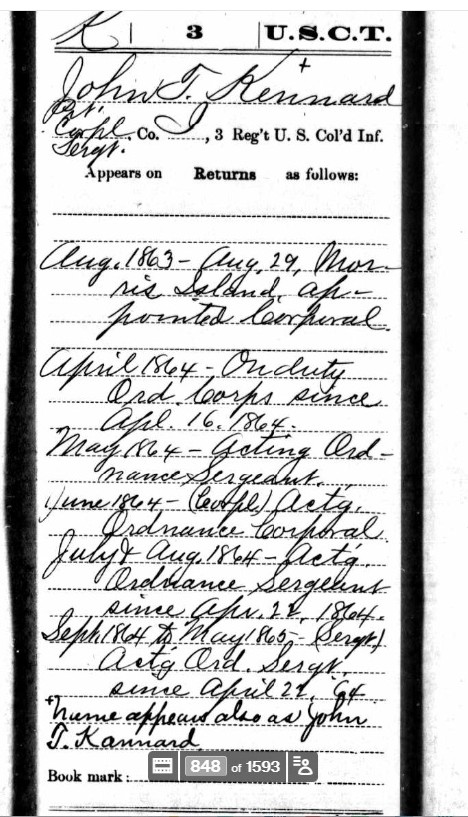 K | 3 | U.S.C.T.
+
John T. Kennard
Pvt.
Corpl., Co. I, 3 Reg't U. S. Col'd Inf.
Sergt.
Appears on Returns as follows:
Aug. 1863 – Aug. 29, Mor-
ris Island, ap-
pointed Corporal.
April 1864 – On duty
Ord. Corps since
Apl. 16. 1864.
May 1864 – Acting Ord-
nance Sergeant.
June 1864 – (Corpl.) Actg.
Ordnance Corporal.
July & Aug. 1864 – Actg.
Ordnance Sergeant
since Apr. 22, 1864.
Sept. 1864 to May 1865 – (Sergt)
Actg Ord. Sergt.
since April 22, 64
+ Name appears also as John
T. Kannard
Book mark:
848 of 1593